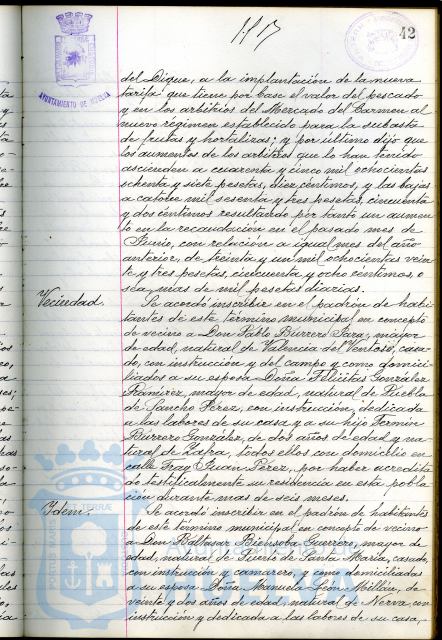 1117
42
AYUNTAMIENTO DE HUELVA
del Dique, a la implantación de la nueva
tarifa que tiene por base el valor del pescado
y en los arbitrios del Mercado del Carmen al
nuevo régimen establecido para la subasta
de frutas y hortalizas; y por último dijo que
los aumentos de los arbitrios que lo han tenido
ascienden a cuarenta y cinco mil ochocientas
ochenta y siete pesetas, diez céntimos, y las bajas
a catorce mil sesenta y tres pesetas, cincuenta
y dos céntimos resultando por tanto un aumen
to en la recaudación en el pasado mes de
Junio, con relación a igual mes del año
anterior, de treinta y un mil ochocientas vein
te y tres pesetas, cincuenta y ocho céntimos, o
sea, mas de mil pesetas diarias.
Vecindad.
Se acordó inscribir en el padrón de habi
tantes de este término municipal en concepto
de vecino a Don Pablo Burrero Jara, mayor
de edad, natural de Valencia del Ventoso, casa
do, con instrucción y del campo y como domici
liados a su esposa Doña Felicitas González
Ramírez, mayor de edad, natural de Puebla
de Sancho Pérez, con instrucción, dedicada
a las labores de su casa y a su hijo Fermín
Burrero González, de dos años de edad y na
tural de Zafra, todos ellos con domicilio en
calle Fray Juan Pérez, por haber acredita
do testificalmente su residencia en esta pobla
ción durante mas de seis meses.
Ydem.
Se acordó inscribir en el padrón de habitantes
de este término municipal en concepto de vecino
a Don Baltasar Biensoba Guerrero, mayor de
edad, natural de Puerto de Santa María, casado,
con instrucción y camarero, y como domiciliadas
a su esposa Doña Manuela León Millán, de
veinte y dos años de edad, natural de Nerva, con
instrucción y dedicada a las labores de su casa,